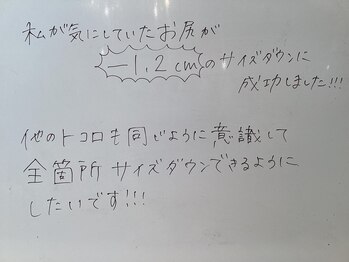 私が気にしていたお尻が
-1.2cmのサイズダウンに
成功しました!!!
他のトコロも同じように意識して
全箇所サイズダウンできるように
したいです!!!